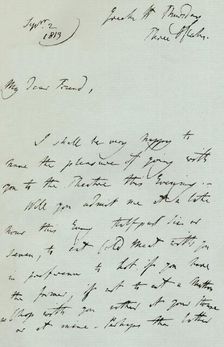 Sepr. 2
1813
Thursday
Three o'Clock.
My dear Friend,
I shall be very happy to
have the pleasure of going with
you to the Theatre this Evening.
Will you admit me at a late
hour this Evng half past six or
seven, to eat Cold Meat with you
in preference to hot if you have
the former, if not to eat a Mutton
Chop with you either at your House
or at mine. Perhaps the latter